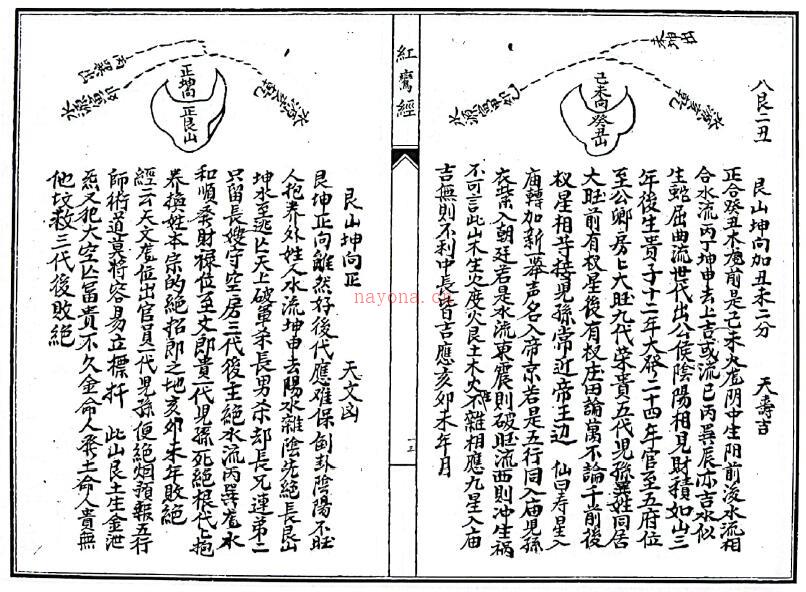 八艮二丑 艮山坤向加丑未二分 天壽吉
正合癸丑木 前是己未火 阴中生阳前 水流相
合水流丙丁坤申去上吉或流巳丙巽辰亦吉水似
生蛇屈曲流世代出公侯陰陽相見財積如山三
年後生貴子十二年大發二十四年官至五府位
至公卿房上大旺九代荣貴五代児孫異姓同居
大旺前有权星後有权庄田論萬不論千前後
权星相寻接児孫常近帝王边 仙曰寿星入
庙轉加新一举声名入帝京若是五行同入庙児孫
衣紫入朝廷若是水流東震則破旺流西則冲生禍
不可言此山木生火度火艮土木火不雜相應九星入庙
吉無則不利中長皆吉應亥卯未年月
己未向
癸丑山
未坤申
紅鸞經
艮山坤向正 天文凶
艮坤正向雖然好後代應难保倒卦陰陽不旺
人抱养外姓人水流坤申去陽水雜陰 絕長艮山
坤水至逃亡天上破軍杀長男杀却長兄連弟二
只留長嫂守空房三代後主絕水流丙巽 水
和順乘財祿位至文郎貴一代児孫死絕根代上抱
养換姓本宗的絕招郎之地亥卯未年敗絕
經云天文 位出官員一代児孫便絕烟預報五行
師術道莫将容易立標扦 此山艮土生金泄
炁又犯大空亡冨貴不久金命人發土命人貴無
他坟救三代後敗絕
正坤向
正艮山
nayona.cn